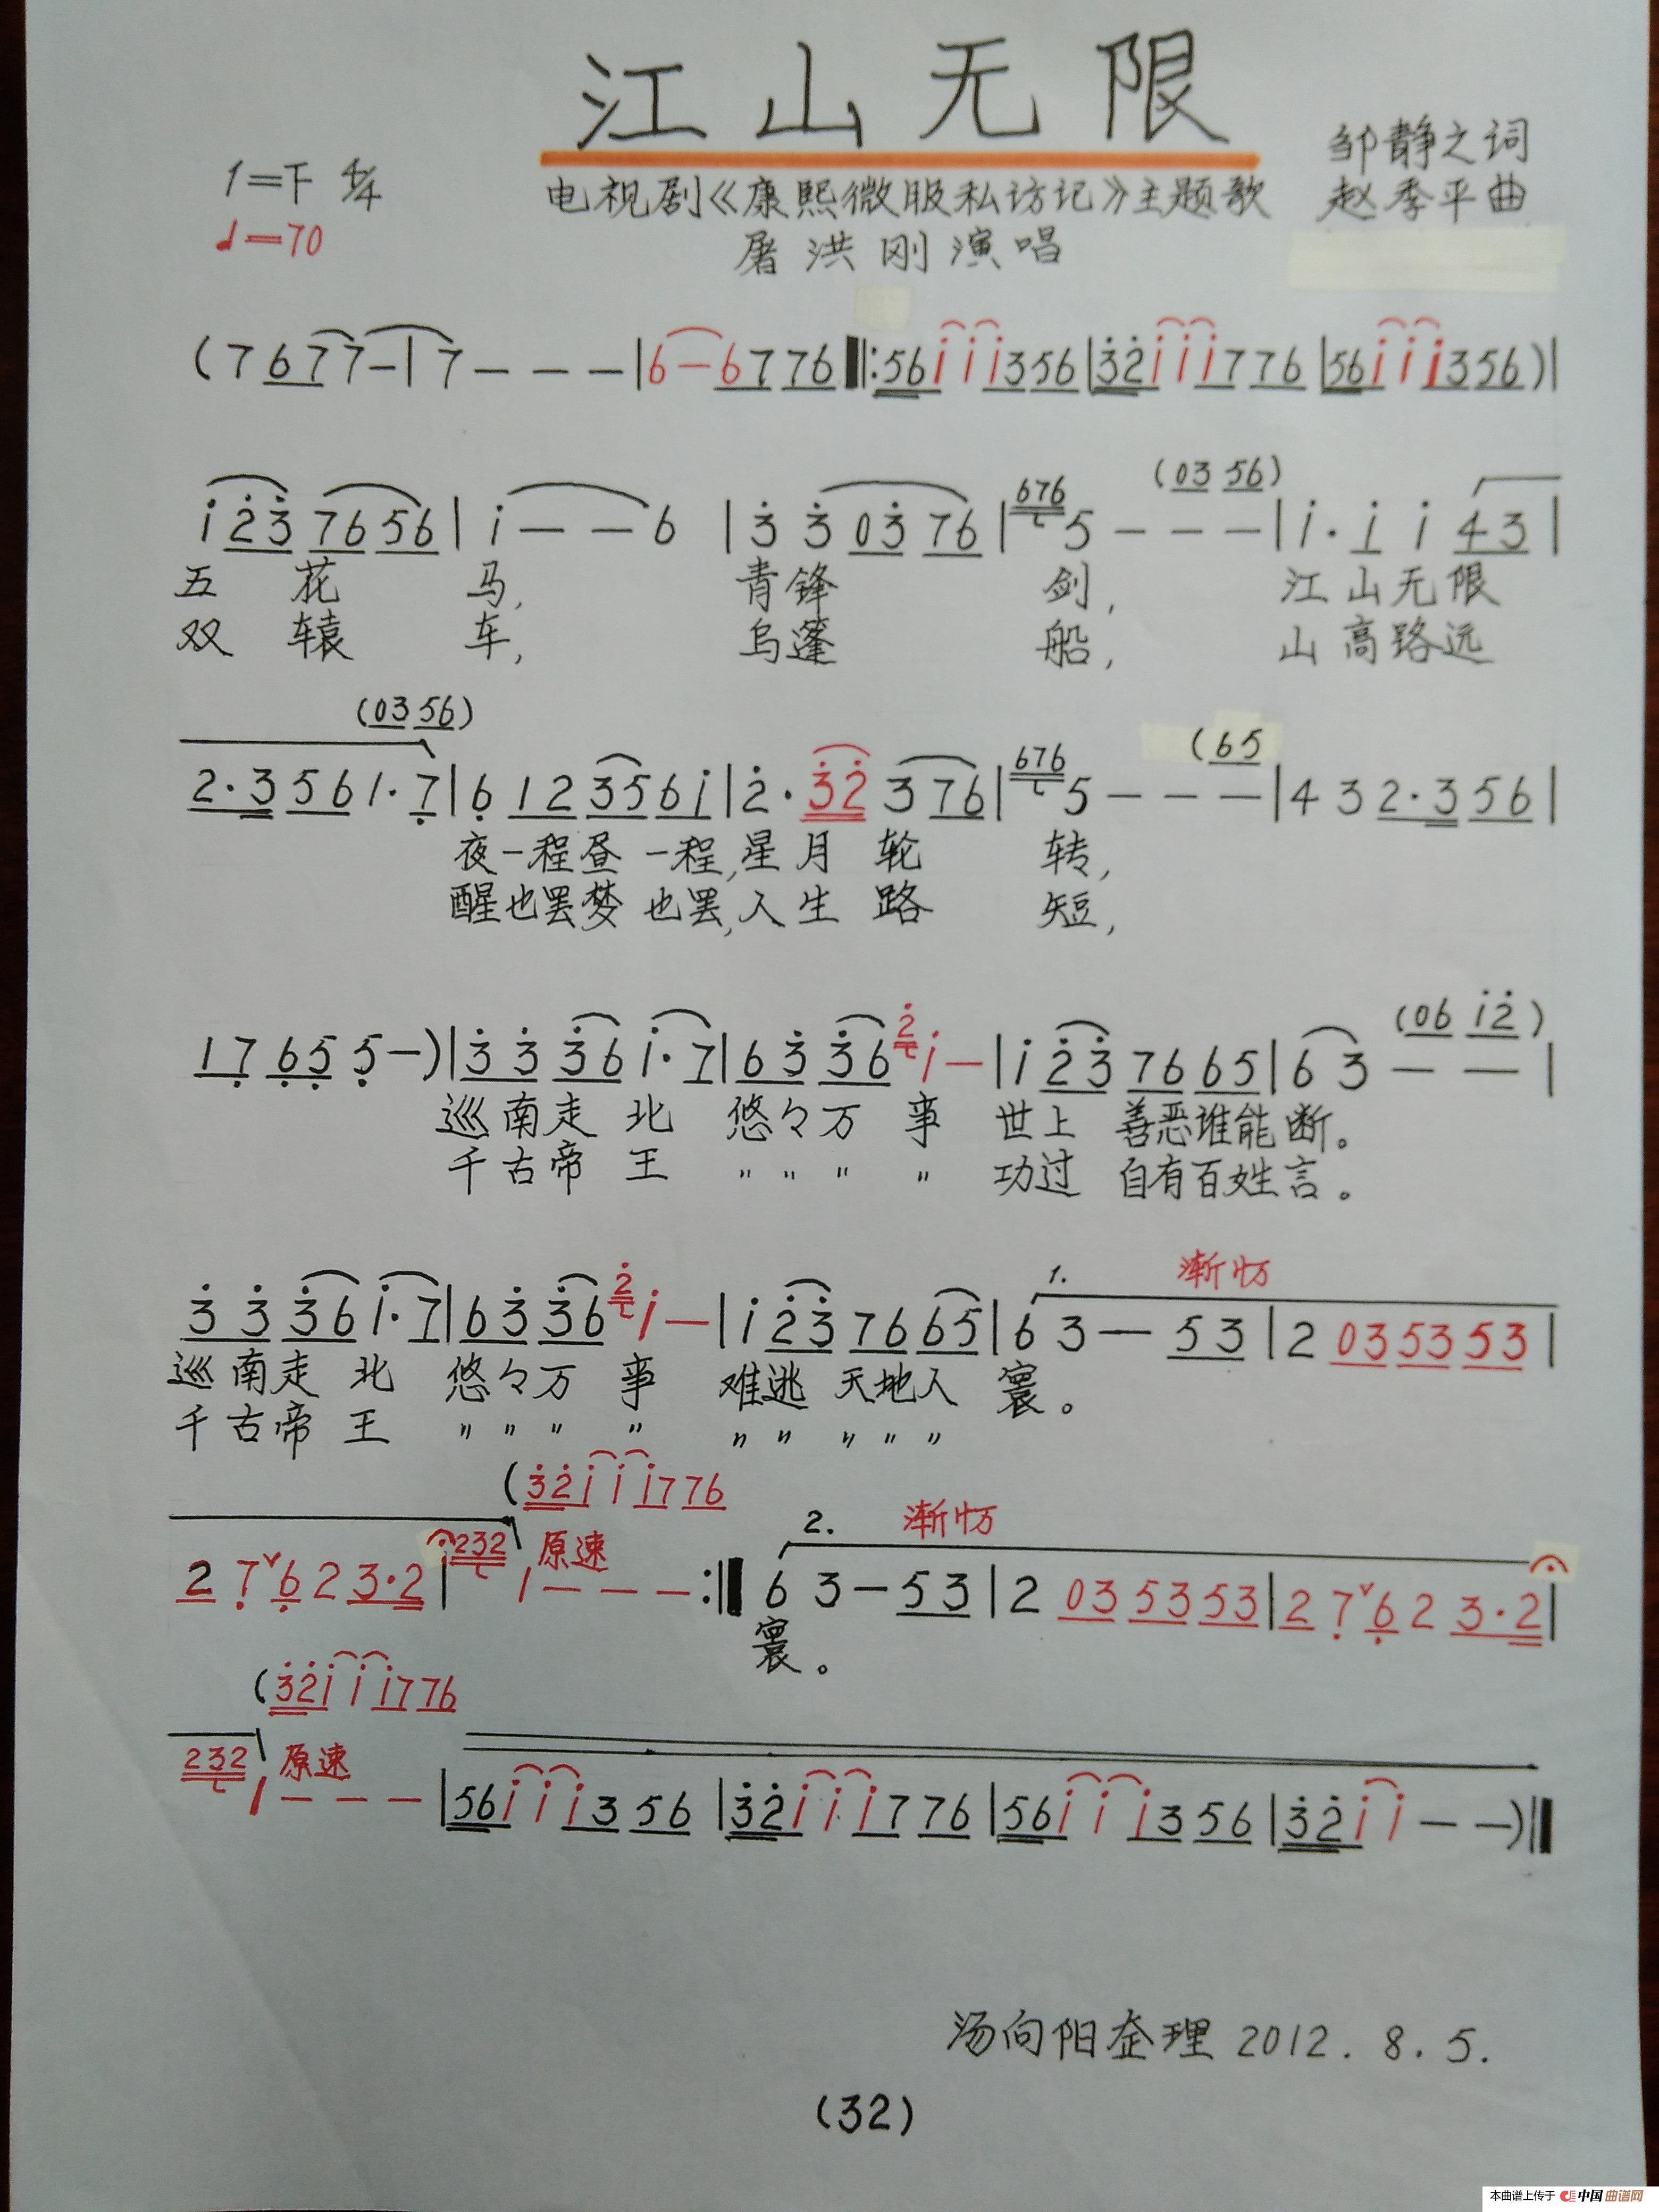 江山无限
1=下 4/4
邹静之词
♩=70
电视剧《康熙微服私访记》主题歌
赵季平曲
屠洪刚演唱
(7 6 7 7 7 – | 7 – – – | 6 – 6 7 7 6 ‖: 5 6 i i i 3 5 6 | 3 2 i i i 7 7 6 | 5 6 i i i 3 5 6 ) |
(0 3 5 6)
i 2 3 7 6 5 6 | i – – 6 | 3 3 0 3 7 6 | 676 5 – – – | i · i i 4 3 |
五 花 马, 青锋 剑, 江山无限
双 辕 车, 乌篷 船, 山高路远
(0 3 5 6)
(6 5
2 · 3 5 6 1 · 7 | 6 1 2 3 5 6 i | 2 · 3 2 3 7 6 | 676 5 – – – | 4 3 2 · 3 5 6 |
夜一程昼一程,星月轮 转,
醒也罢梦也罢,人生路 短,
(0 6 i 2)
1 7 6 5 5 – ) | 3 3 3 6 i · 7 | 6 3 3 6 2 i – | i 2 3 7 6 6 5 | 6 3 – – |
巡南走 北 悠々万 事 世上 善恶谁能断。
千古帝 王 〃 〃 〃 〃 功过 自有百姓言。
1. 渐慢
3 3 3 6 i · 7 | 6 3 3 6 2 i – | i 2 3 7 6 6 5 | 6 3 – 5 3 | 2 0 3 5 3 5 3 |
巡南走 北 悠々万 事 难逃 天地人 寰。
千古帝 王 〃 〃 〃 〃 〃 〃 〃 〃 〃
(3 2 i i i 7 7 6
2. 渐慢
2 7 ˅ 6 2 3 · 2 | 232 1 – – – :‖ 6 3 – 5 3 | 2 0 3 5 3 5 3 | 2 7 ˅ 6 2 3 · 2 |
原速
寰。
(3 2 i i i 7 7 6
原速
232 1 – – – | 5 6 i i i 3 5 6 | 3 2 i i i 7 7 6 | 5 6 i i i 3 5 6 | 3 2 i i – – ) ‖
汤向阳整理 2012.8.5.
(32)
本曲谱上传于 中国曲谱网